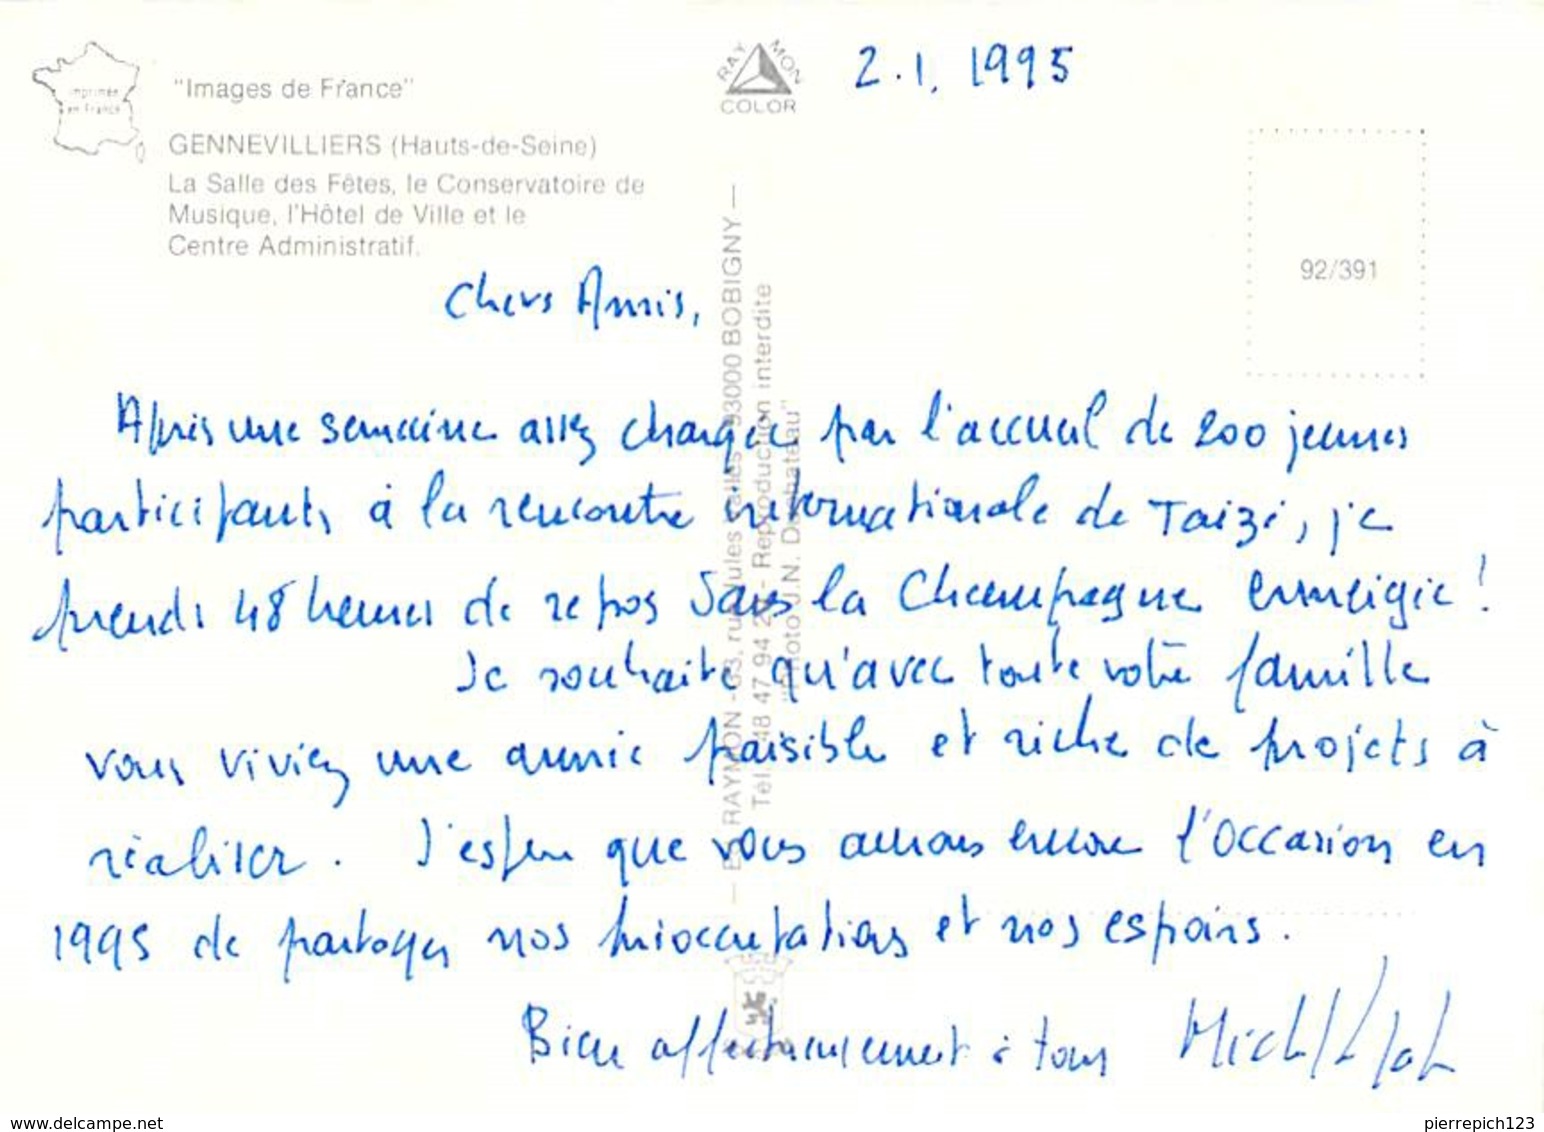 imprimée
en France
"Images de France"
GENNEVILLIERS (Hauts-de-Seine)
La Salle des Fêtes, le Conservatoire de
Musique, l'Hôtel de Ville et le
Centre Administratif.
RAYMON
COLOR
2.1.1995
92/391
Chers Amis,
Après une semaine assez chargée par l'accueil de 200 jeunes
participants à la rencontre internationale de Taizé, je
prends 48 heures de repos dans la Champagne enneigée !
Je souhaite qu'avec toute votre famille
vous viviez une année paisible et riche de projets à
réaliser. J'espère que nous aurons encore l'occasion en
1995 de partager nos préoccupations et nos espoirs.
Bien affectueusement à tous
RAYMON - 63, rue Jules Vallès 93000 BOBIGNY —
Tél. 48 47 94 - Reproduction interdite
"Photo J.N. Deschateau"
delcampe.net
pierrepich123